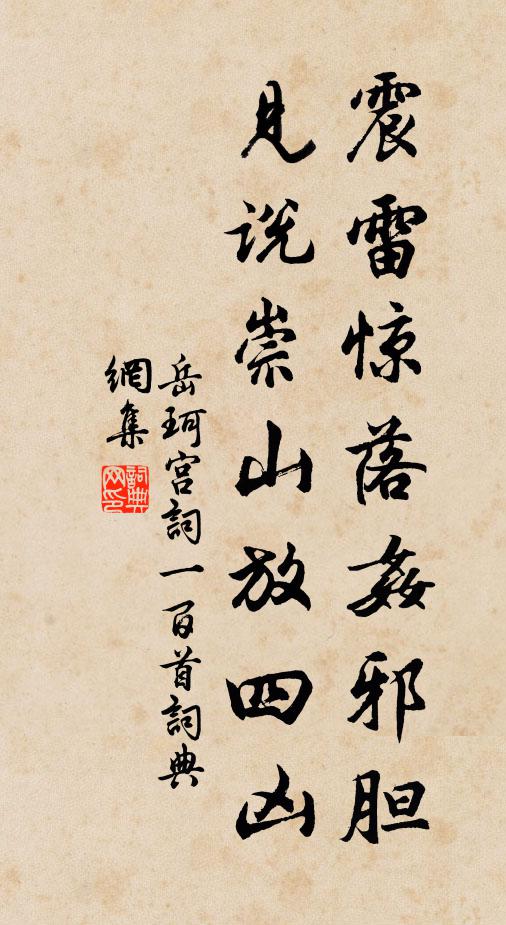 震雷惊落姦邪胆
見説崇山放四凶
岳珂宫詞一百首詞典
網集
詞典
网印